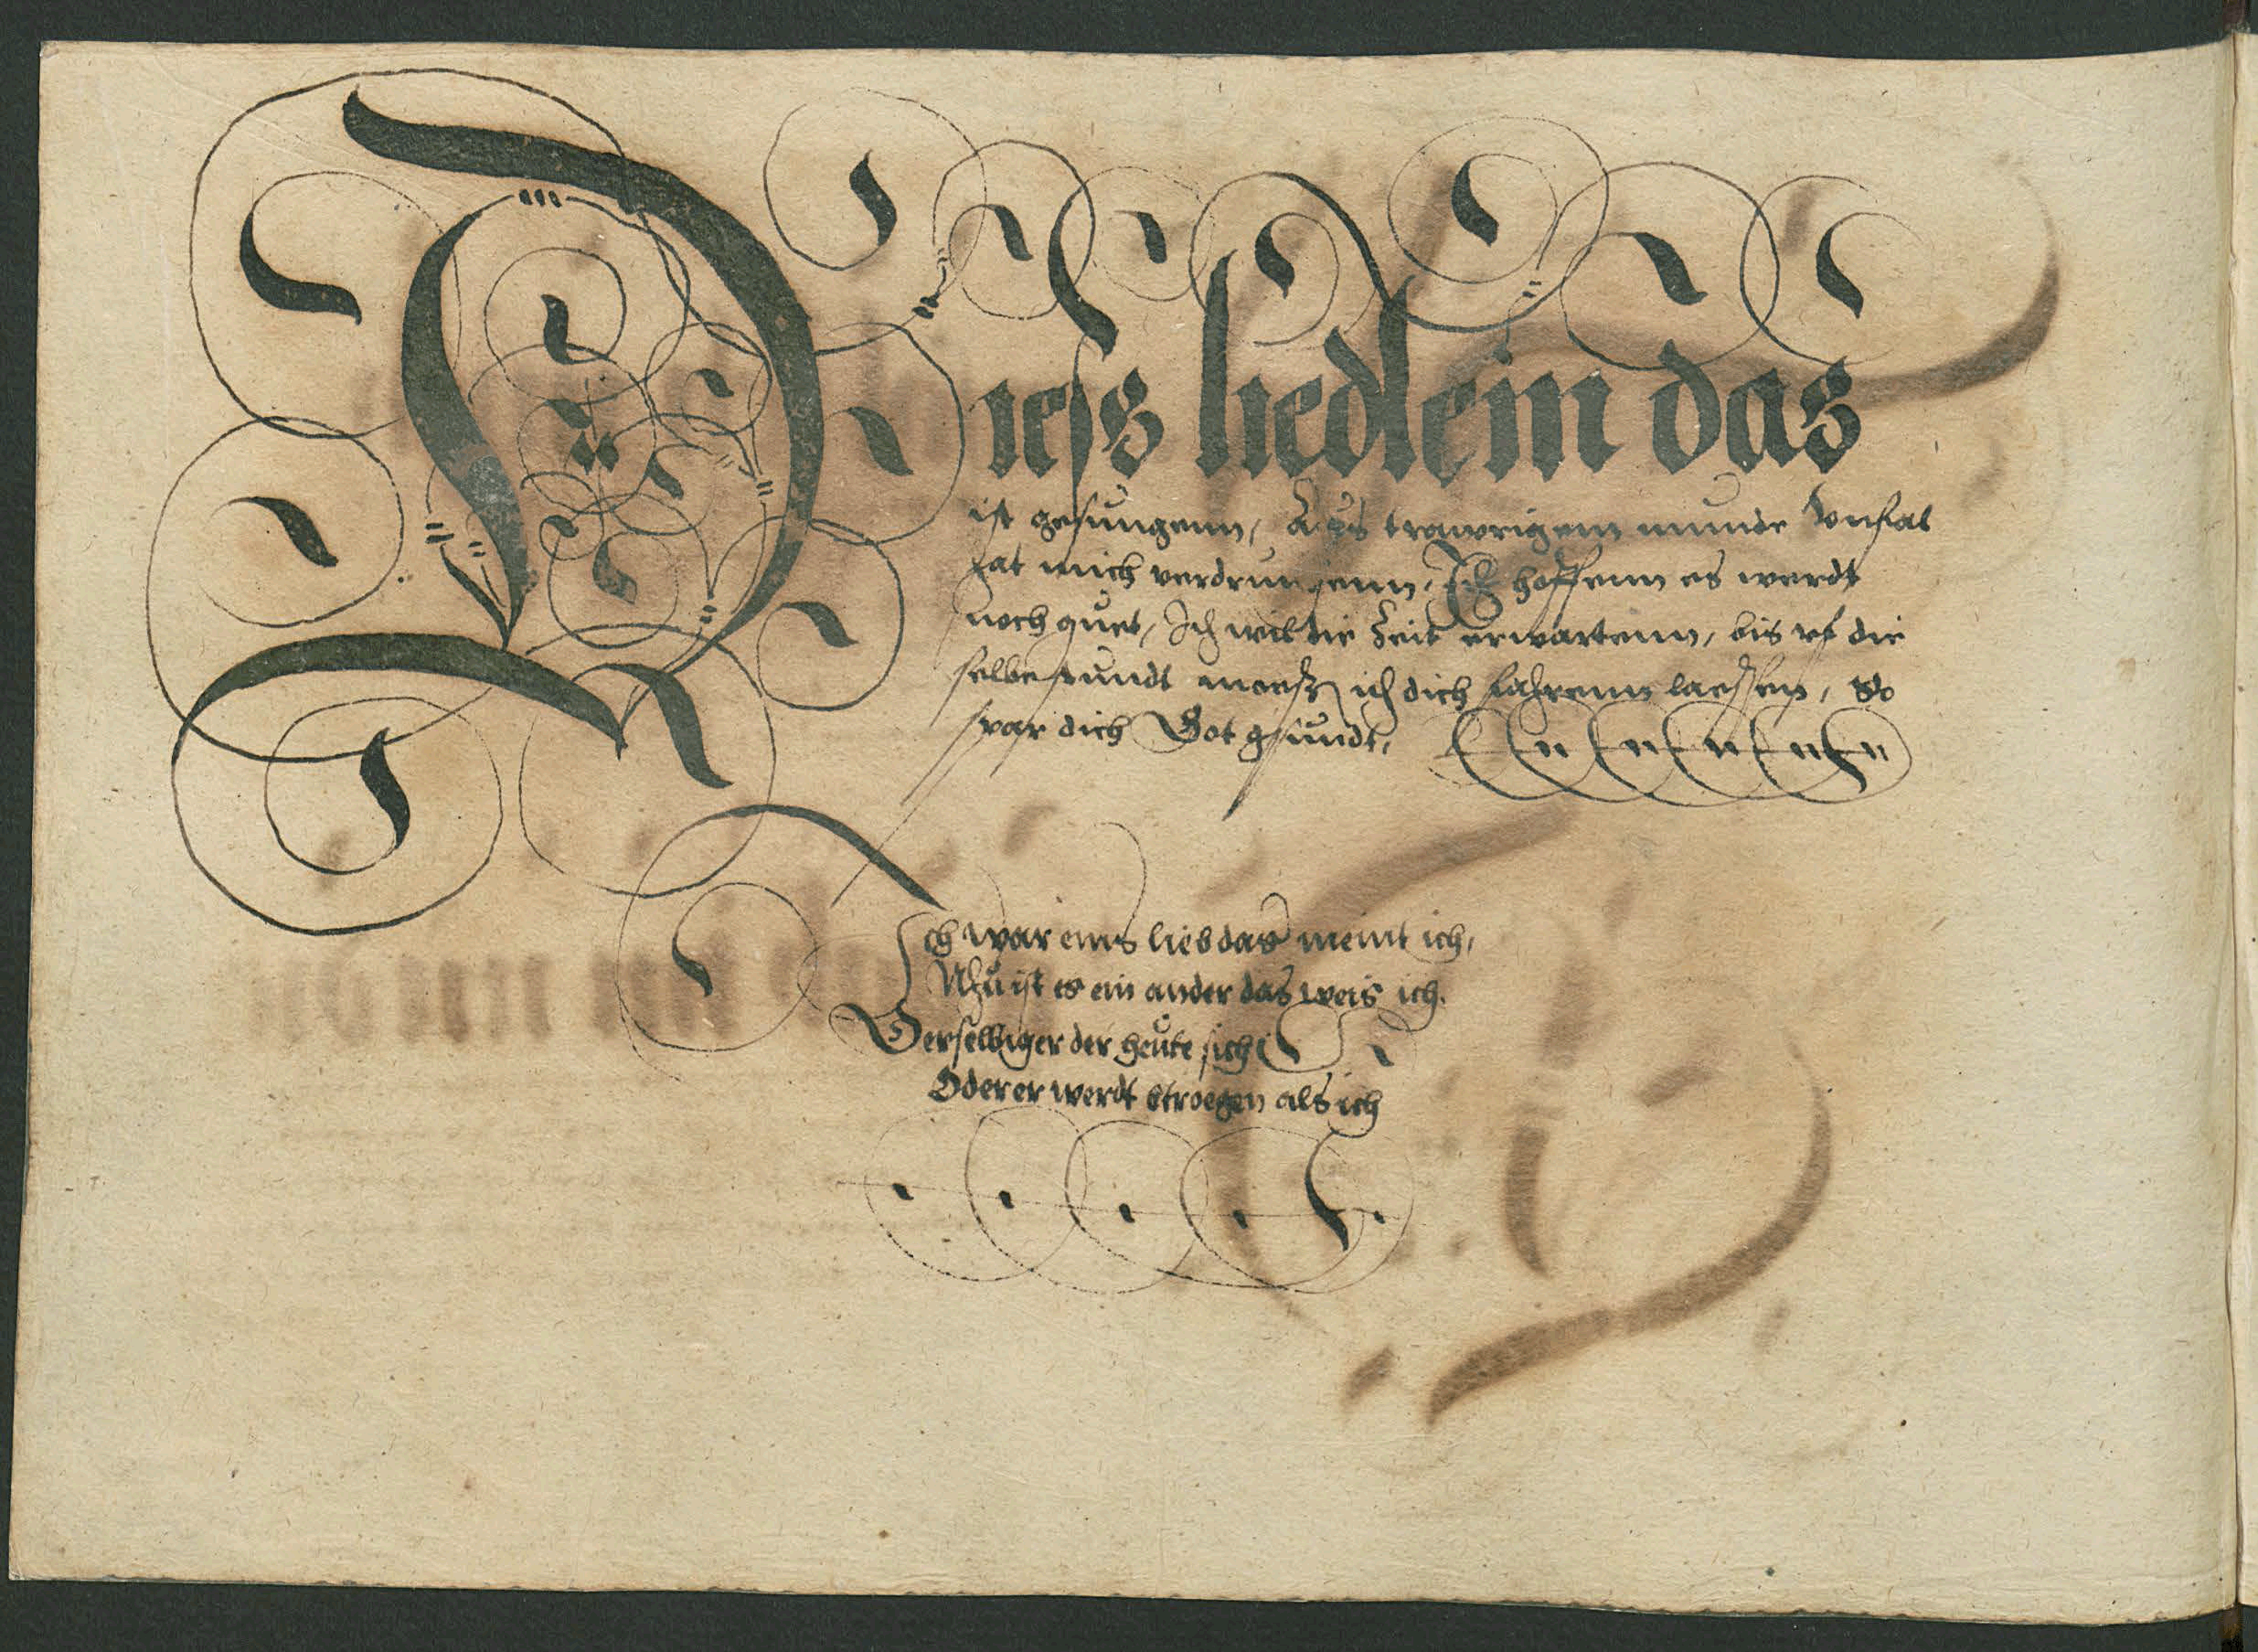 Diess liedlein das
ist gesungenn, Aus trawrigem munde Vnfal
hat mich verdrungenn, Ich hoffenn es werdt
noch guet, Ich wil die Zeit erwartenn, bis vf die
selbe stundt moess ich dich fahrenn laessen, So
spar dich Got gsundt,
Ich war eins lieb das meint ich,
Nhu ist es ein ander das weis ich.
Derselbiger der heute sich
Oder er werdt btroegen als ich